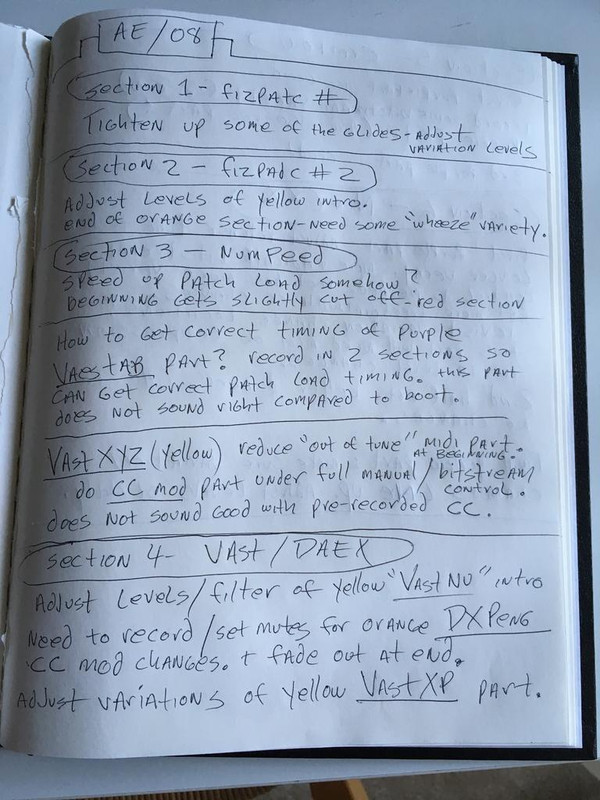 AE/08
Section 1 - fizpatc #
Tighten up some of the glides - adjust
variation levels
Section 2 - fizpatc # 2
Adjust levels of yellow intro.
end of orange section - need some "wheeze" variety.
Section 3 - Numpeed
Speed up patch load somehow?
beginning gets slightly cut off - red section
How to get correct timing of purple
VaestAB part? record in 2 sections so
can get correct patch load timing. this part
does not sound right compared to boot.
VastXYZ (yellow) reduce "out of tune" midi part.
at beginning.
do CC mod part under full manual/bitstream
control.
does not sound good with pre-recorded CC.
Section 4 - Vast/DAEX
Adjust levels/filter of yellow "VastNU" intro
Need to record/set mutes for orange DXPENG
CC mod changes. + fade out at end.
Adjust variations of yellow VastXP part.